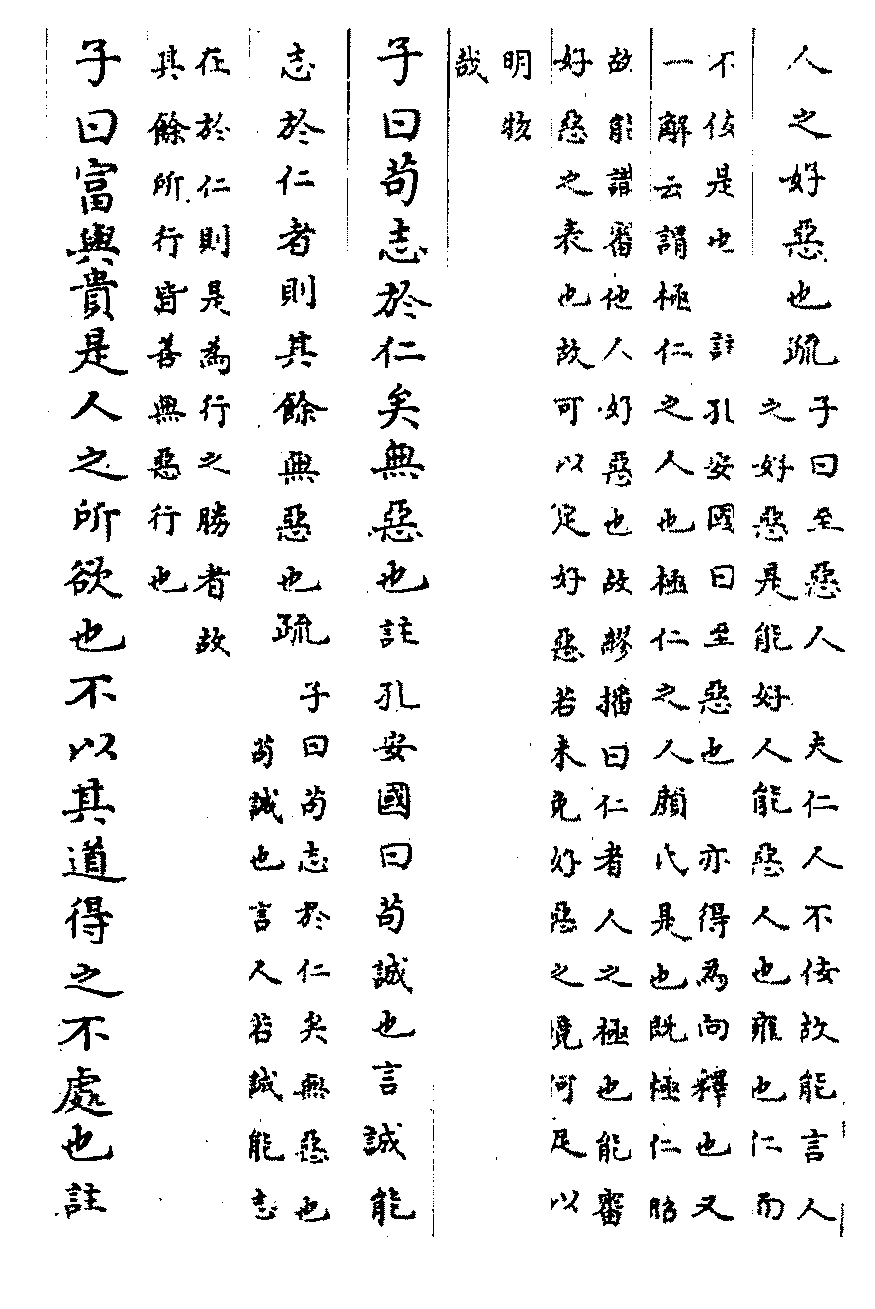 人之好惡也疏
子曰至惡人　夫仁人不佞故能言人
之好惡是能好人能惡人也雍也仁而
不佞是也　註孔安國曰至惡也　亦得為向釋也又
一解云謂極仁之人也極仁之人顏氏是也既極仁昭
故能識審他人好惡也故繆播曰仁者人之極也能審
好惡之表也故可以定好惡若未免好惡之境何足以
明物
哉
子曰苟志於仁矣無惡也註孔安國曰苟誠也言誠能
志於仁者則其餘無惡也疏
子曰苟志於仁矣無惡也
苟誠也言人若誠能志
在於仁則是為行之勝者故
其餘所行皆善無惡行也
子曰富與貴是人之所欲也不以其道得之不處也註